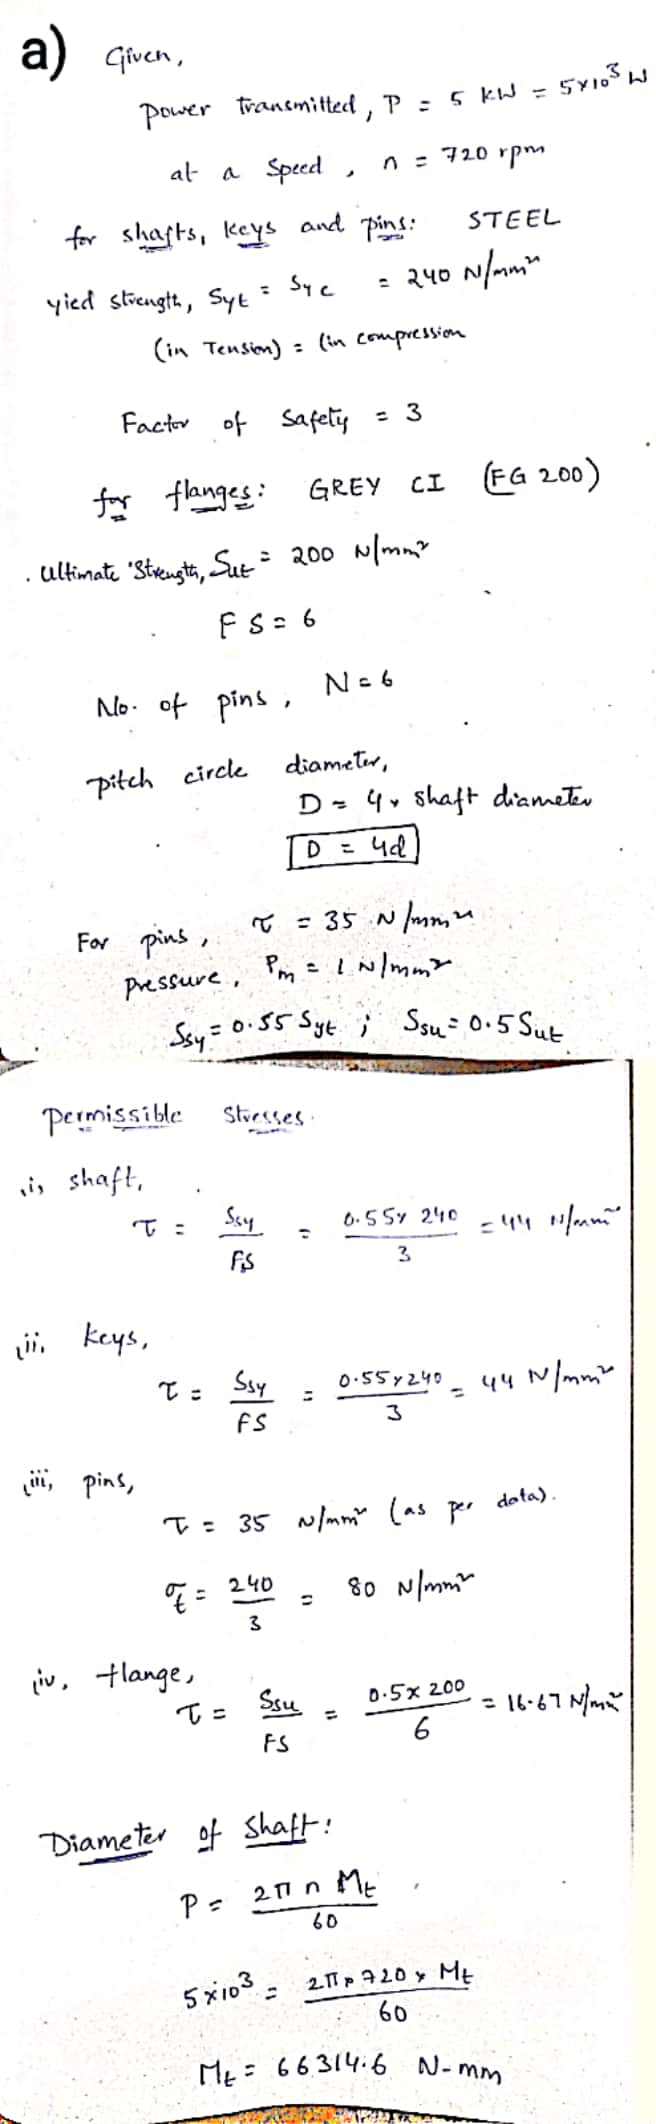 a) Given,
Power transmitted, P = 5 kW = 5×10³ W
at a Speed, n = 720 rpm
for shafts, keys and pins: STEEL
yied strength, Syt = Syc = 240 N/mm²
(in Tension) = (in compression
Factor of Safety = 3
for flanges: GREY CI (FG 200)
Ultimate Strength, Sut = 200 N/mm²
FS = 6
No. of pins, N = 6
pitch circle diameter,
D = 4 × shaft diameter
D = 4d
For pins, τ = 35 N/mm²
pressure, Pm = 1 N/mm²
Ssy = 0.55 Syt ; Ssu = 0.5 Sut
Permissible Stresses.
i, shaft,
τ = Ssy/FS = 0.55×240/3 = 44 N/mm²
ii, keys,
τ = Ssy/FS = 0.55×240/3 = 44 N/mm²
iii, pins,
τ = 35 N/mm² (as per data).
σt = 240/3 = 80 N/mm²
iv, flange,
τ = Ssu/FS = 0.5×200/6 = 16.67 N/mm²
Diameter of Shaft:
P = 2πn Mt/60
5×10³ = 2π×720×Mt/60
Mt = 66314.6 N-mm